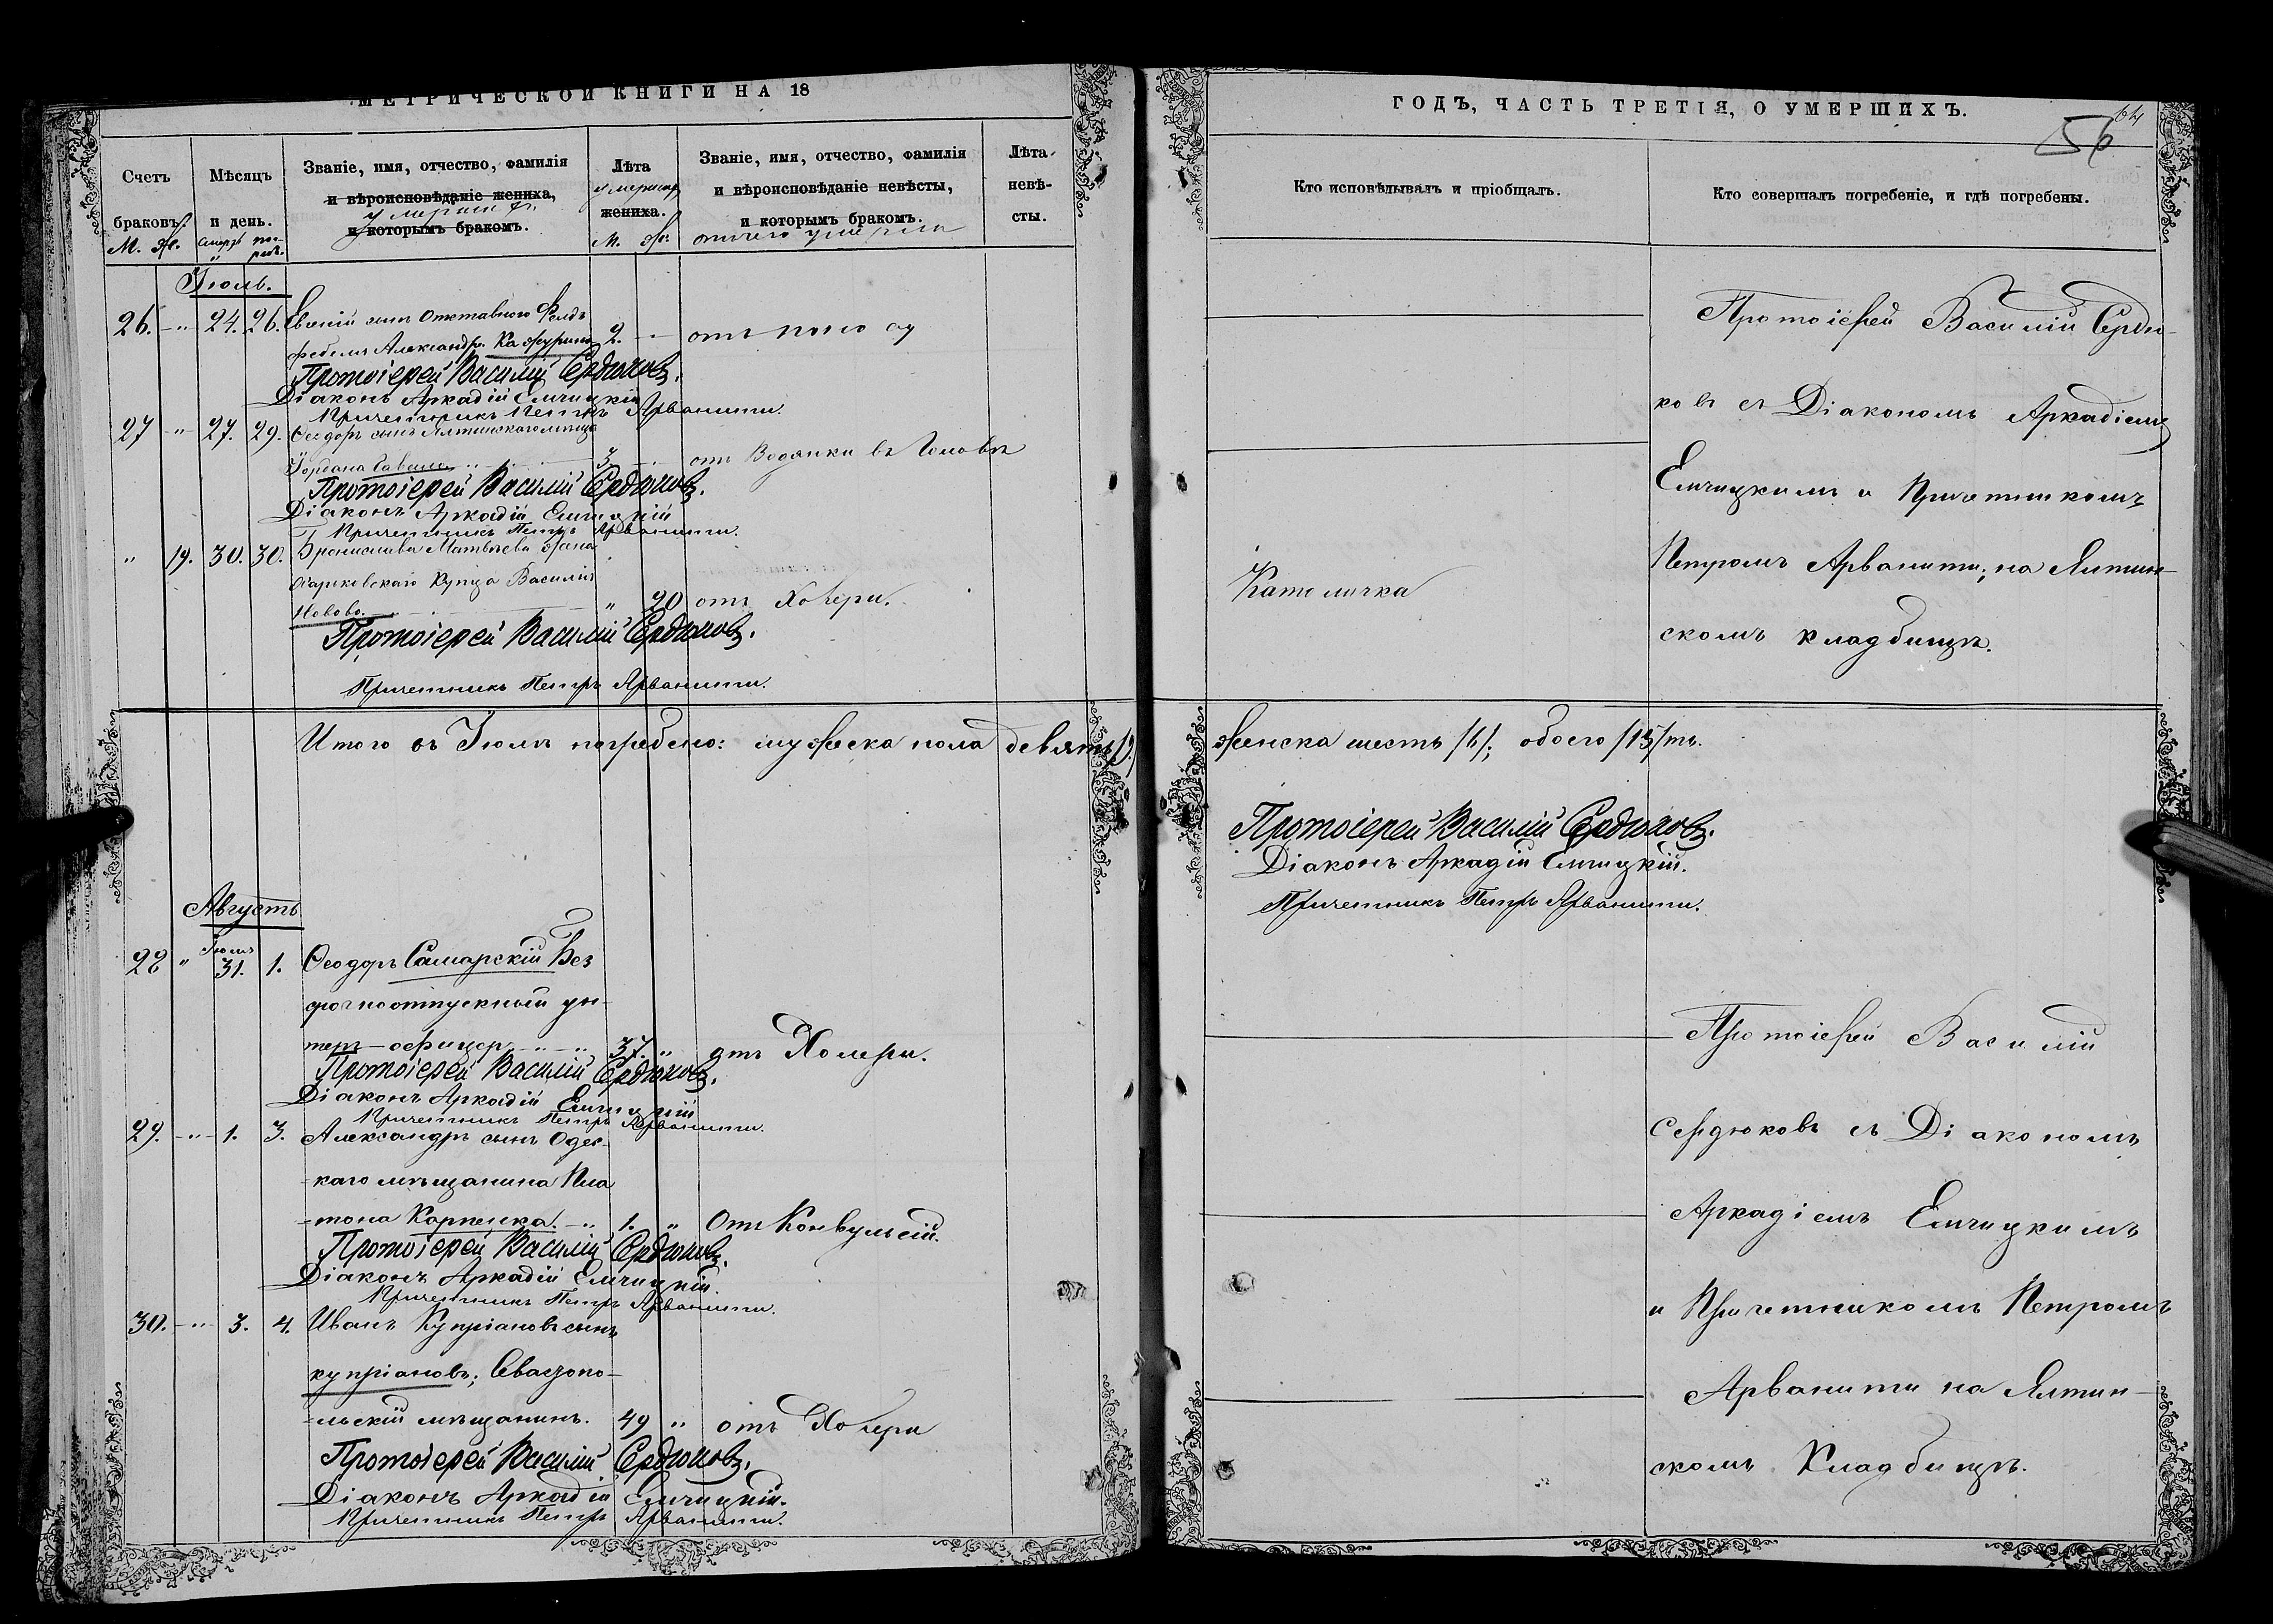 МЕТРИЧЕСКОЙ КНИГИ НА 18
Счетъ
браковъ.
М. Ж.
Мѣсяцъ
и день.
Званіе, имя, отчество, фамилія
и вѣроисповѣданіе жениха,
умершихъ
и которымъ бракомъ.
Лѣта
умершихъ
жениха.
М. Ж.
Званіе, имя, отчество, фамилія
и вѣроисповѣданіе невѣсты,
и которымъ бракомъ.
отчего умерли
Лѣта
невѣ-
сты.
Іюль.
26. " 24. 26. Евгеній сынъ Отставного Фельд
фебеля Александра Кажурина 2. - отъ поносу
Протоіерей Василій Сердюковъ.
Діаконъ Аркадій Емчицкій
Причетникъ Петръ Арванити.
27 " 27. 29. Ѳеодоръ сынъ Ялтинскаго мѣщ
Іордана 3. отъ Водянки въ Головѣ
Протоіерей Василій Сердюковъ.
Діаконъ Аркадій Емчицкій
Причетникъ Петръ Арванити.
" 19. 30. 30. Брониславa Матвѣева жена
Харьковскаго Купца Василія
" 20 отъ Холеры.
Протоіерей Василій Сердюковъ.
Причетникъ Петръ Арванити.
Итого въ Іюлѣ погребено: мужеска пола девять /9/
Августъ
28 " Іюля 31. 1. Ѳеодоръ Самарскій Без
срочноотпускный ун-
теръ-офицеръ 37. " отъ Холеры.
Протоіерей Василій Сердюковъ.
Діаконъ Аркадій Емчицкій
Причетникъ Петръ Арванити.
29. " 1. 3. Александръ сынъ Одес-
-каго мѣщанина Пла
-тона Карпенка. 1. " Отъ Конвульсій.
Протоіерей Василій Сердюковъ.
Діаконъ Аркадій Емчицкій.
Причетникъ Петръ Арванити.
30. " 3. 4. Иванъ Купріановъ сынъ
купріановъ; Севастопо-
-льскій мѣщанинъ. 49 " отъ Холеры
Протоіерей Василій Сердюковъ.
Діаконъ Аркадій Емчицкій.
Причетникъ Петръ Арванити.
ГОДЪ, ЧАСТЬ ТРЕТІЯ, О УМЕРШИХЪ.
64
56
Кто исповѣдывалъ и пріобщалъ.
Кто совершалъ погребеніе, и гдѣ погребены.
Протоіерей Василій Сердю-
ковъ съ Діакономъ Аркадіемъ
Емчицкимъ и Причетникомъ
Петромъ Арванити; на Ялтин-
скомъ кладбищѣ.
Католичка
женска шесть /6/; обоего /15/ть.
Протоіерей Василій Сердюковъ.
Діаконъ Аркадій Емчицкій.
Причетникъ Петръ Арванити.
Протоіерей Василій
Сердюковъ съ Діакономъ
Аркадіемъ Емчицкимъ
и Причетникомъ Петромъ
Арванити на Ялтин-
скомъ Кладбищѣ.